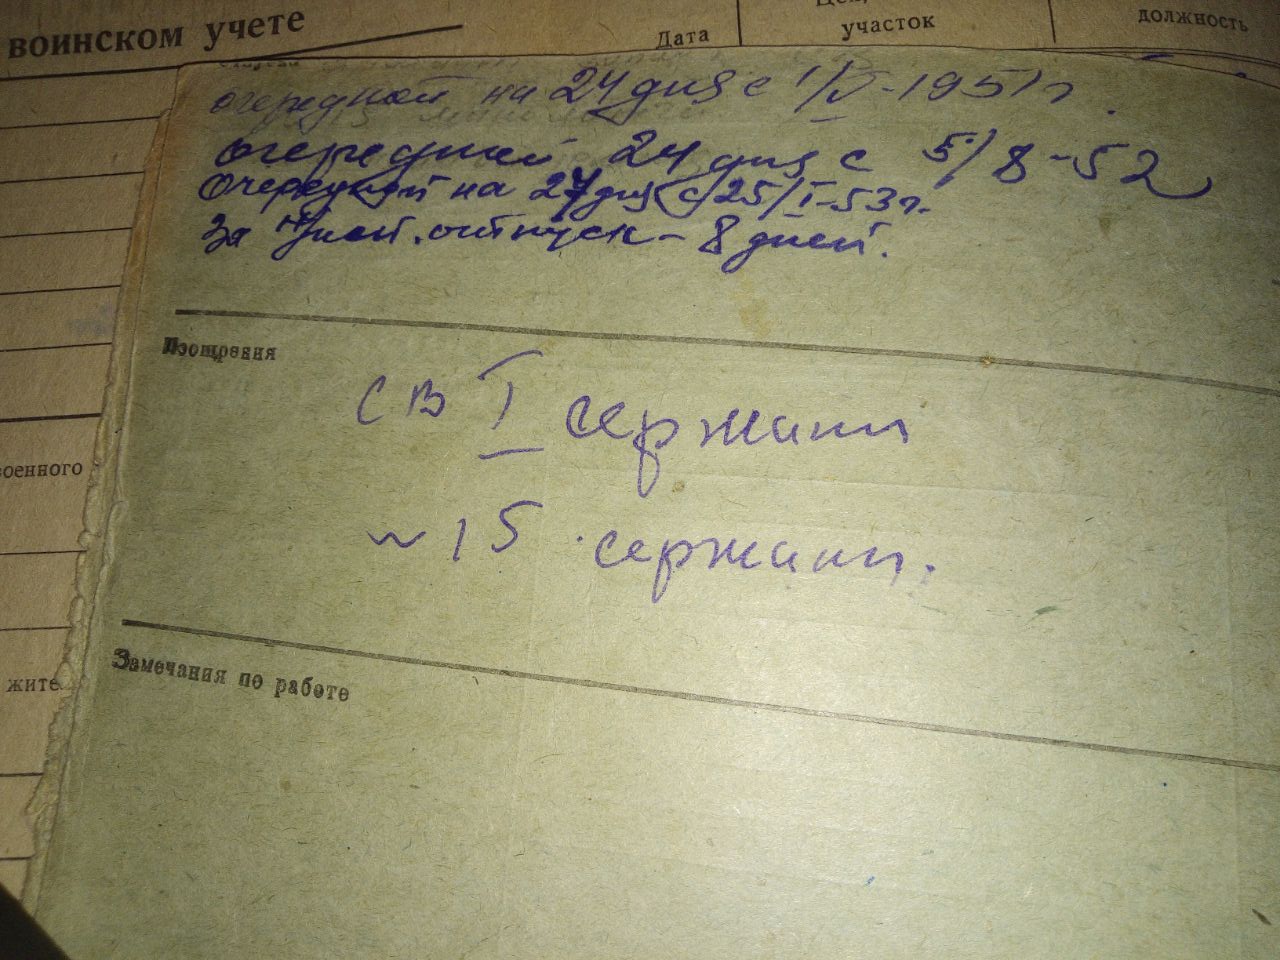 воинском учете
Дата
участок
должность
очередной на 24 дня с 1/V-1951г.
очередной 24 дня с 5/8-52
очередной на 24 дня с 25/I-53г.
За дней. отпуск - 8 дней.
Поощрения
СВ I сержант
военного
~ 15 сержант.
жите
Замечания по работе